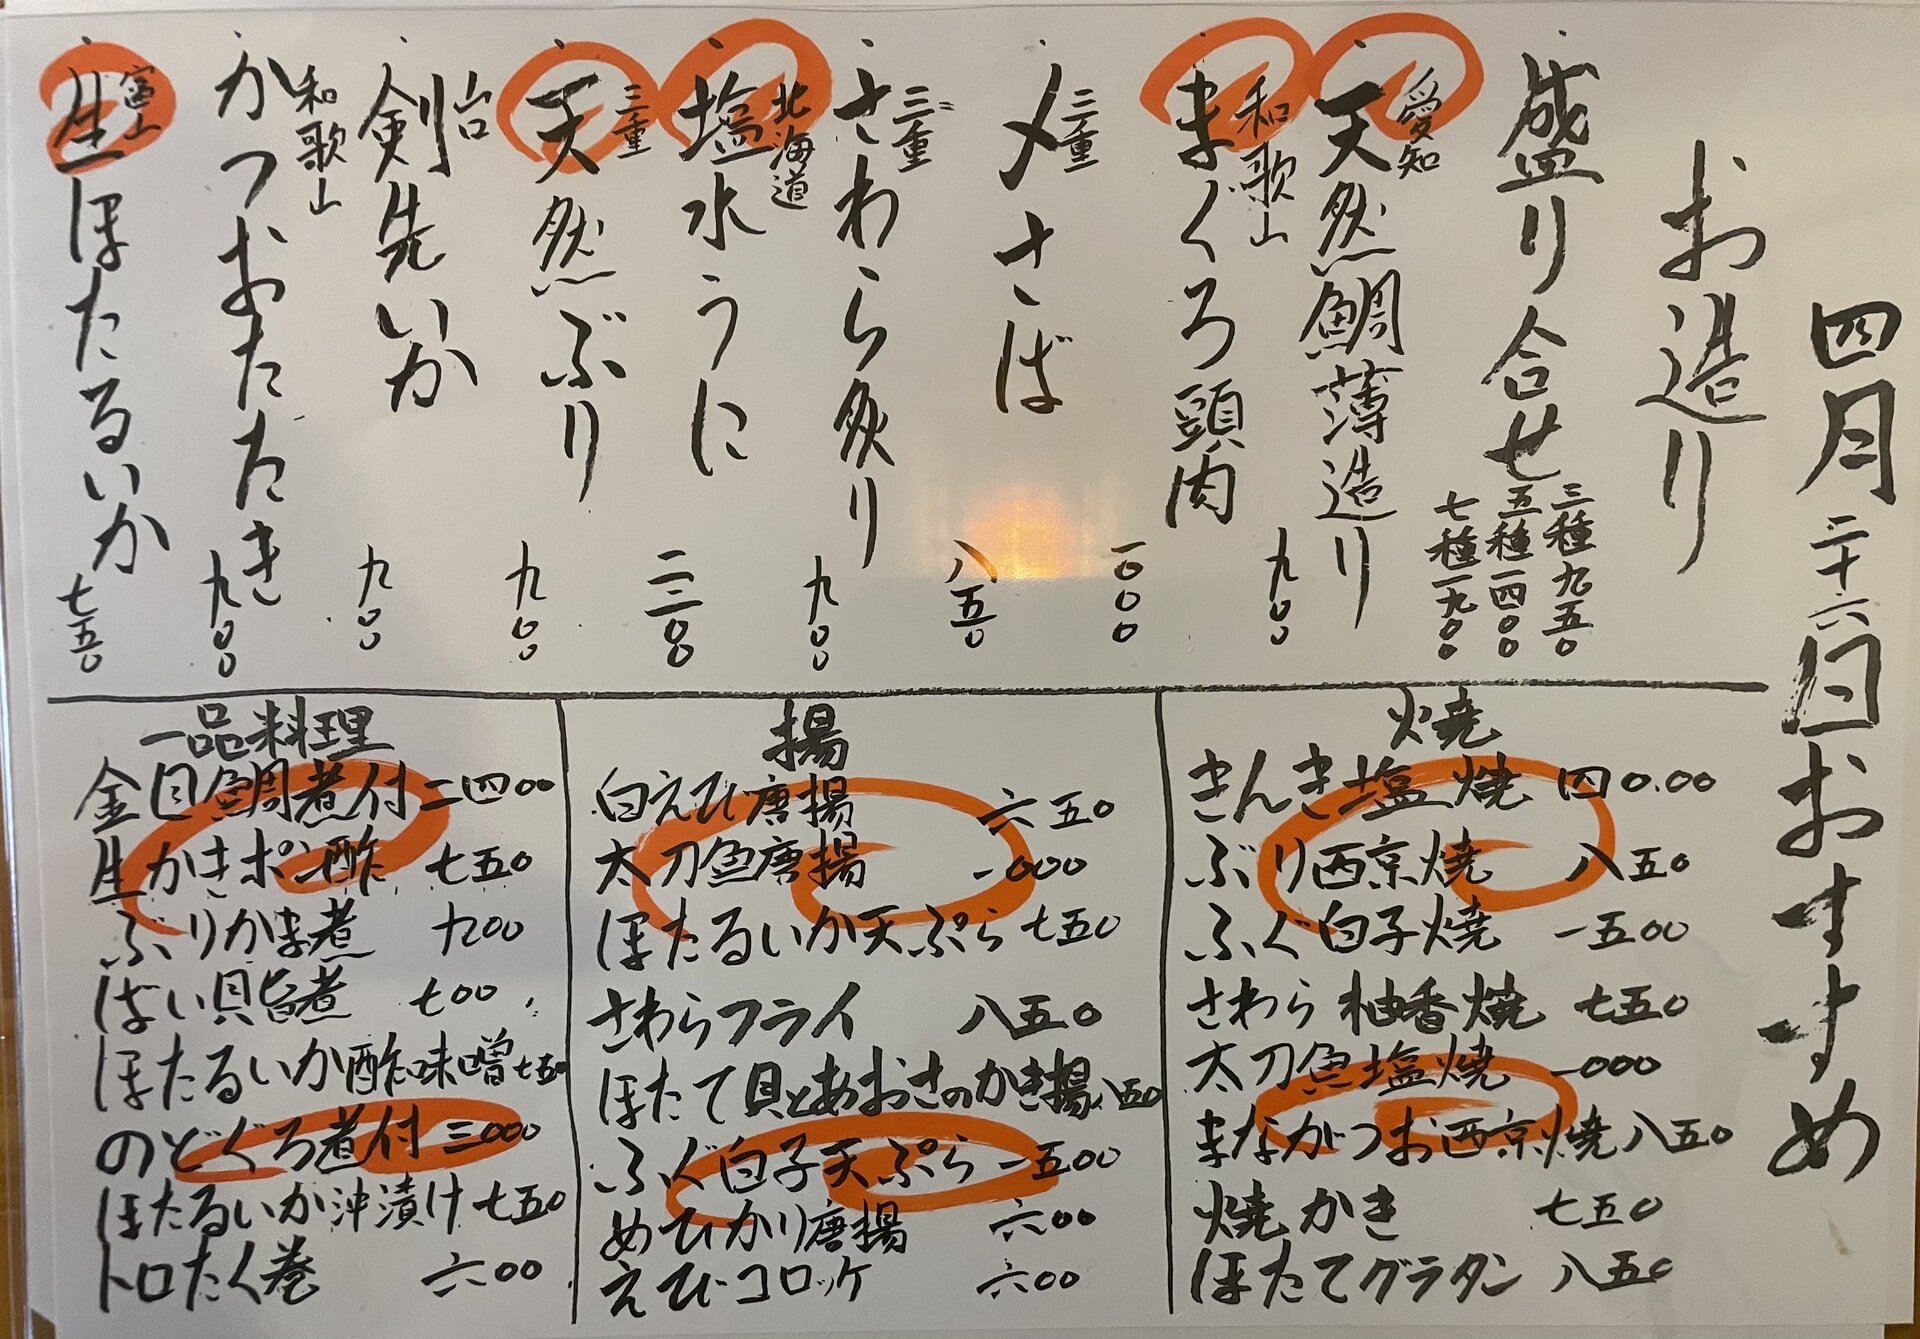 四月二十六日おすすめ
お造り
盛り合せ
三種 九五〇
五種 一四〇〇
七種 一九〇〇
愛知
天然鯛薄造り 九〇〇
和歌山
まぐろ頭肉 一〇〇〇
三重
〆さば 八五〇
三重
さわら炙り 九〇〇
北海道
塩水うに
三重
天然ぶり 九〇〇
剣先いか 九〇〇
和歌山
かつおたたき 九〇〇
富山
生ほたるいか 七五〇
焼
きんき塩焼 四〇.〇〇
ぶり西京焼 八五〇
ふぐ白子焼 一五〇〇
さわら柚香焼 七五〇
太刀魚塩焼 一〇〇〇
まながつお西京焼 八五〇
焼かき 七五〇
ほたてグラタン 八五〇
揚
白えび唐揚 六五〇
太刀魚唐揚 一〇〇〇
ほたるいか天ぷら 七五〇
さわらフライ 八五〇
ほたて貝とあおさのかき揚 八五〇
ふぐ白子天ぷら 一五〇〇
めひかり唐揚 六〇〇
えびコロッケ 六〇〇
一品料理
金目鯛煮付 二四〇〇
生かきポン酢 七五〇
ぶりかま煮 九〇〇
ばい貝旨煮 七〇〇
ほたるいか酢味噌 七五〇
のどぐろ煮付 三〇〇〇
ほたるいか沖漬け 七五〇
トロたく巻 六〇〇